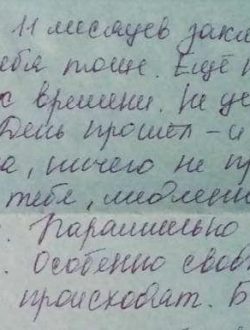 11 месяцев закл
ебя тоже. Ещё
с времени. Не це
День прошел – и
а, ничего не пр
тебе, медленн
. Параллельно
. Особенно своб
происходит. Б